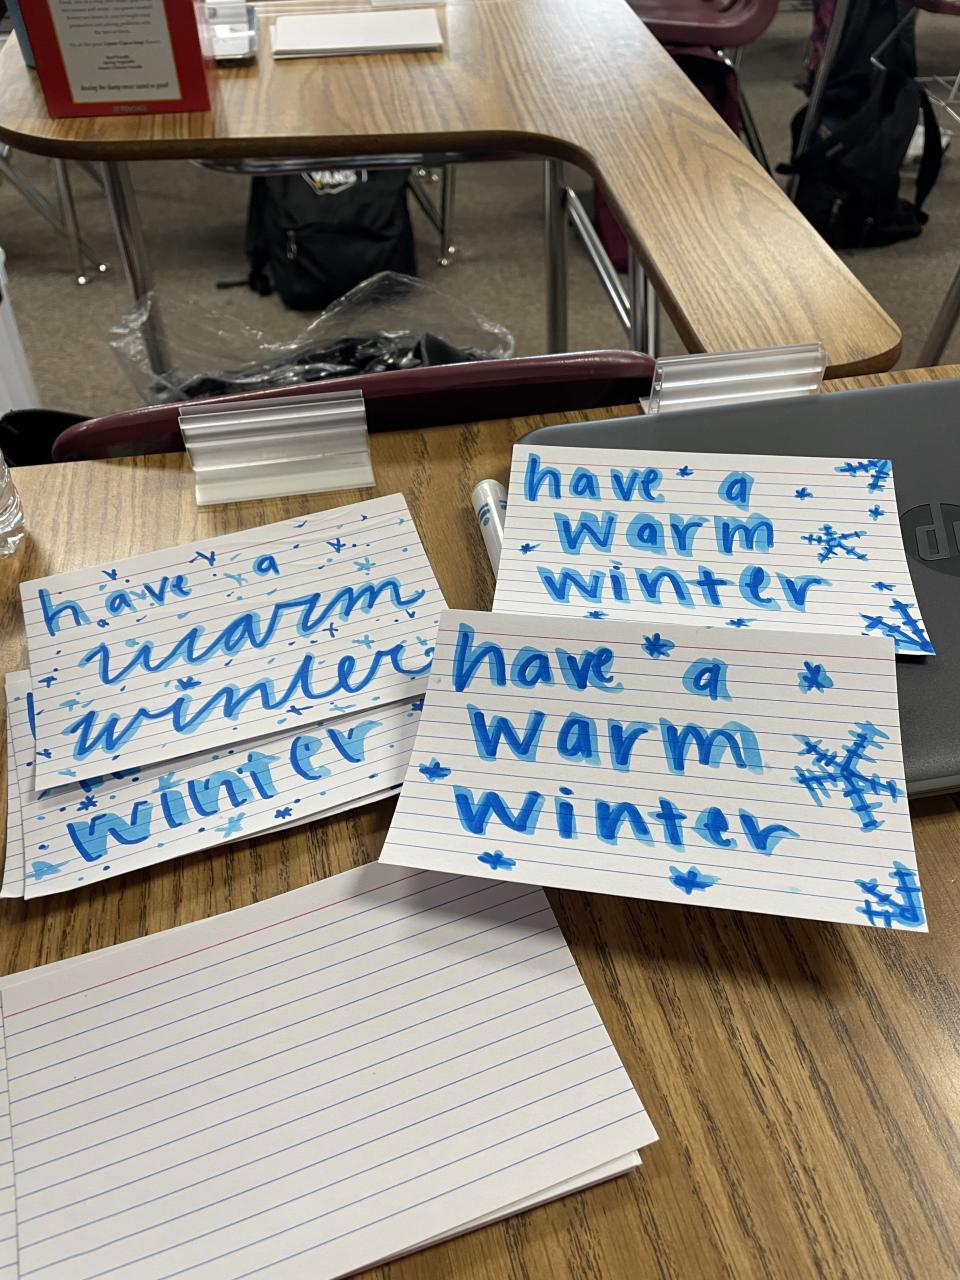 VANS
have a
warm
winter
have a
warm
winter
winter
have a
warm
winter
hp